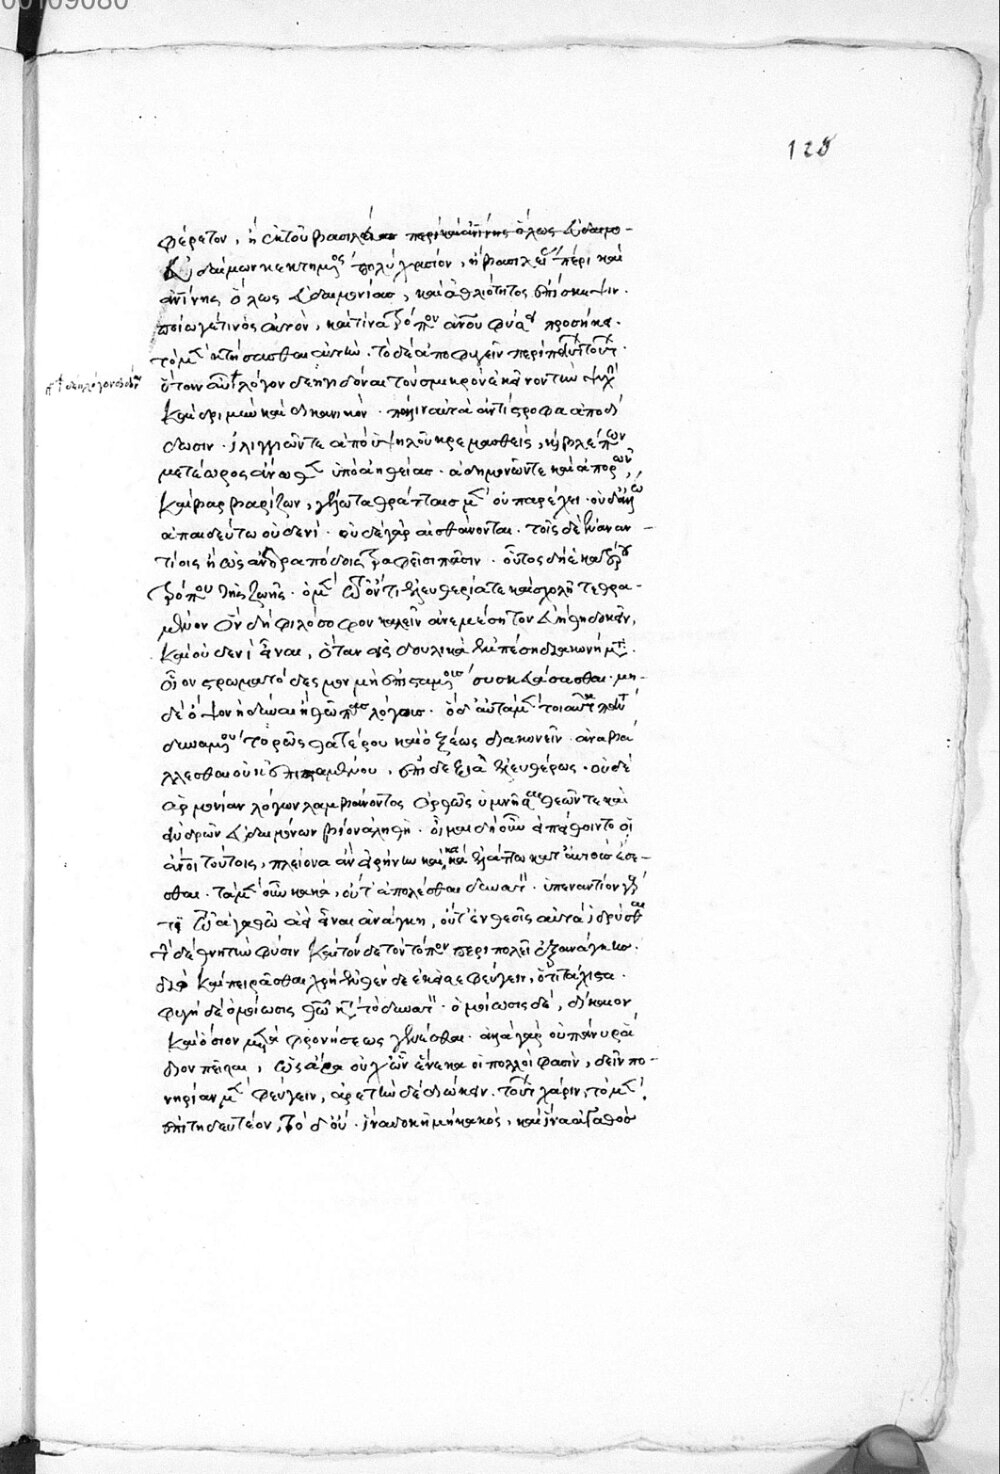 128
φέρετον, ἢ ἐκ τοῦ βασιλεία περὶ καὶ ἀν̅ίνης ὅλως εὐδαιμο-
εὐδαίμων κεκτημένος πολὺ χρυσίον, ἢ βασιλείας πέρι καὶ
ἀν̅ίνης ὅλως εὐδαιμονίας, καὶ ἀθλιότητος ἐπίσκεψιν.
ποίω γέ τινος αὐτὸν, καὶ τίνα τρόπον ἀν̅ου φύσει προσήκει.
τὸ μὲν κτήσασθαι αὐτῶν. τὸ δὲ ἀποφυγεῖν περὶ πάντων τούτων.
ὅταν αὖ λόγον δέη διδόναι τὸν σμικρὸν ἐκεῖνον τὴν ψυχὴν
καὶ δριμὺν καὶ δικανικὸν. πάλιν αὐτὰ ἀντίστροφα ἀποδί
δωσιν. ἰλιγγιῶν τε ἀπὸ ὑψηλοῦ κρεμασθεὶς, καὶ βλέπων
μετέωρος ἄνωθεν ὑπὸ ἀηθείας. ἀδημονῶν τε καὶ ἀπορῶν,
καὶ βαρβαρίζων, γέλωτα θράτταις μὲν οὐ παρέχει. οὐδ' ἄλλω
ἀπαιδεύτω οὐδενί. οὐ δὲ γὰρ αἰσθάνονται. τοῖς δὲ ἐναν αν-
τίοις ἢ ὡς ἀνδραπόδοις τραφεῖσι πᾶσιν. οὗτος δὴ ἑκατέρου
τρόπου τῆς ζωῆς. ὁ μὲν τῶ ὄντι ἐλευθερία τε καὶ σχολῆ τεθρα-
μμένον ὃν δὴ φιλόσοφον καλεῖν ἀνεμέσητον εὐήθη δοκεῖν,
καὶ οὐδενὶ εἶναι, ὅταν εἰς δουλικὰ ἐμπέση διακονήματα.
οἷον στρωματόδεσμον μὴ ἐπισταμένοις συσκευάσασθαι. μη-
δὲ ὄψον ἡδῦναι ἢ θῶπας λόγους. ὁ δ' αὖ τὰ μὲν τοιαῦτα πάντα
δυναμένου τορῶς θατέρου καὶ ὀξέως διακονεῖν. ἀναβά
λλεσθαι οὐκ ἐπισταμένου, ἐπὶ δεξιὰ ἐλευθέρως. οὐδὲ
ἁρμονίαν λόγων λαμβάνοντος ὀρθῶς ὑμνῆσαι θεῶν τε καὶ
ἀνδρῶν εὐδαιμόνων βίον ἀληθῆ. οἶμαι δὴ οὖν ἀπάθοιντο οἱ
ἀν̅οι τούτοις, πλείονα ἂν εἰρήνην καὶ κακὰ ἐλάττω κατ' αὐτοὺς ἔσε-
σθαι. τὰ μὲν οὖν κακὰ, οὔτ' ἀπολέσθαι δυνατὸν. ὑπεναντίον γάρ
τι τῶ ἀγαθῶ ἀεὶ εἶναι ἀνάγκη, οὔτ' ἐν θεοῖς αὐτὰ ἱδρύσθαι
τὴν δὲ θνητὴν φύσιν καὶ τόνδε τὸν τόπον περιπολεῖ ἐξ ἀνάγκης.
διὸ καὶ πειρᾶσθαι χρὴ ἐνθένδε ἐκεῖσε φεύγειν, ὅτι τάχιστα.
φυγὴ δὲ ὁμοίωσις θεῶ κατὰ τὸ δυνατὸν. ὁμοίωσις δὲ, δίκαιον
καὶ ὅσιον μετὰ φρονήσεως γενέσθαι. ἀλλὰ γὰρ οὐ πάνυ ῥᾴ
διον πεῖσαι, ὡς ἄρα οὐχ ὧν ἕνεκα οἱ πολλοὶ φασὶν, δεῖν πο-
νηρίαν μὲν φεύγειν, ἀρετὴν δὲ διώκειν. τούτων χάριν, τὸ μὲν
ἐπιτηδευτέον, τὸ δ' οὔ. ἵνα δοκῆ μὴ κακὸς, καὶ ἵνα ἀγαθὸς